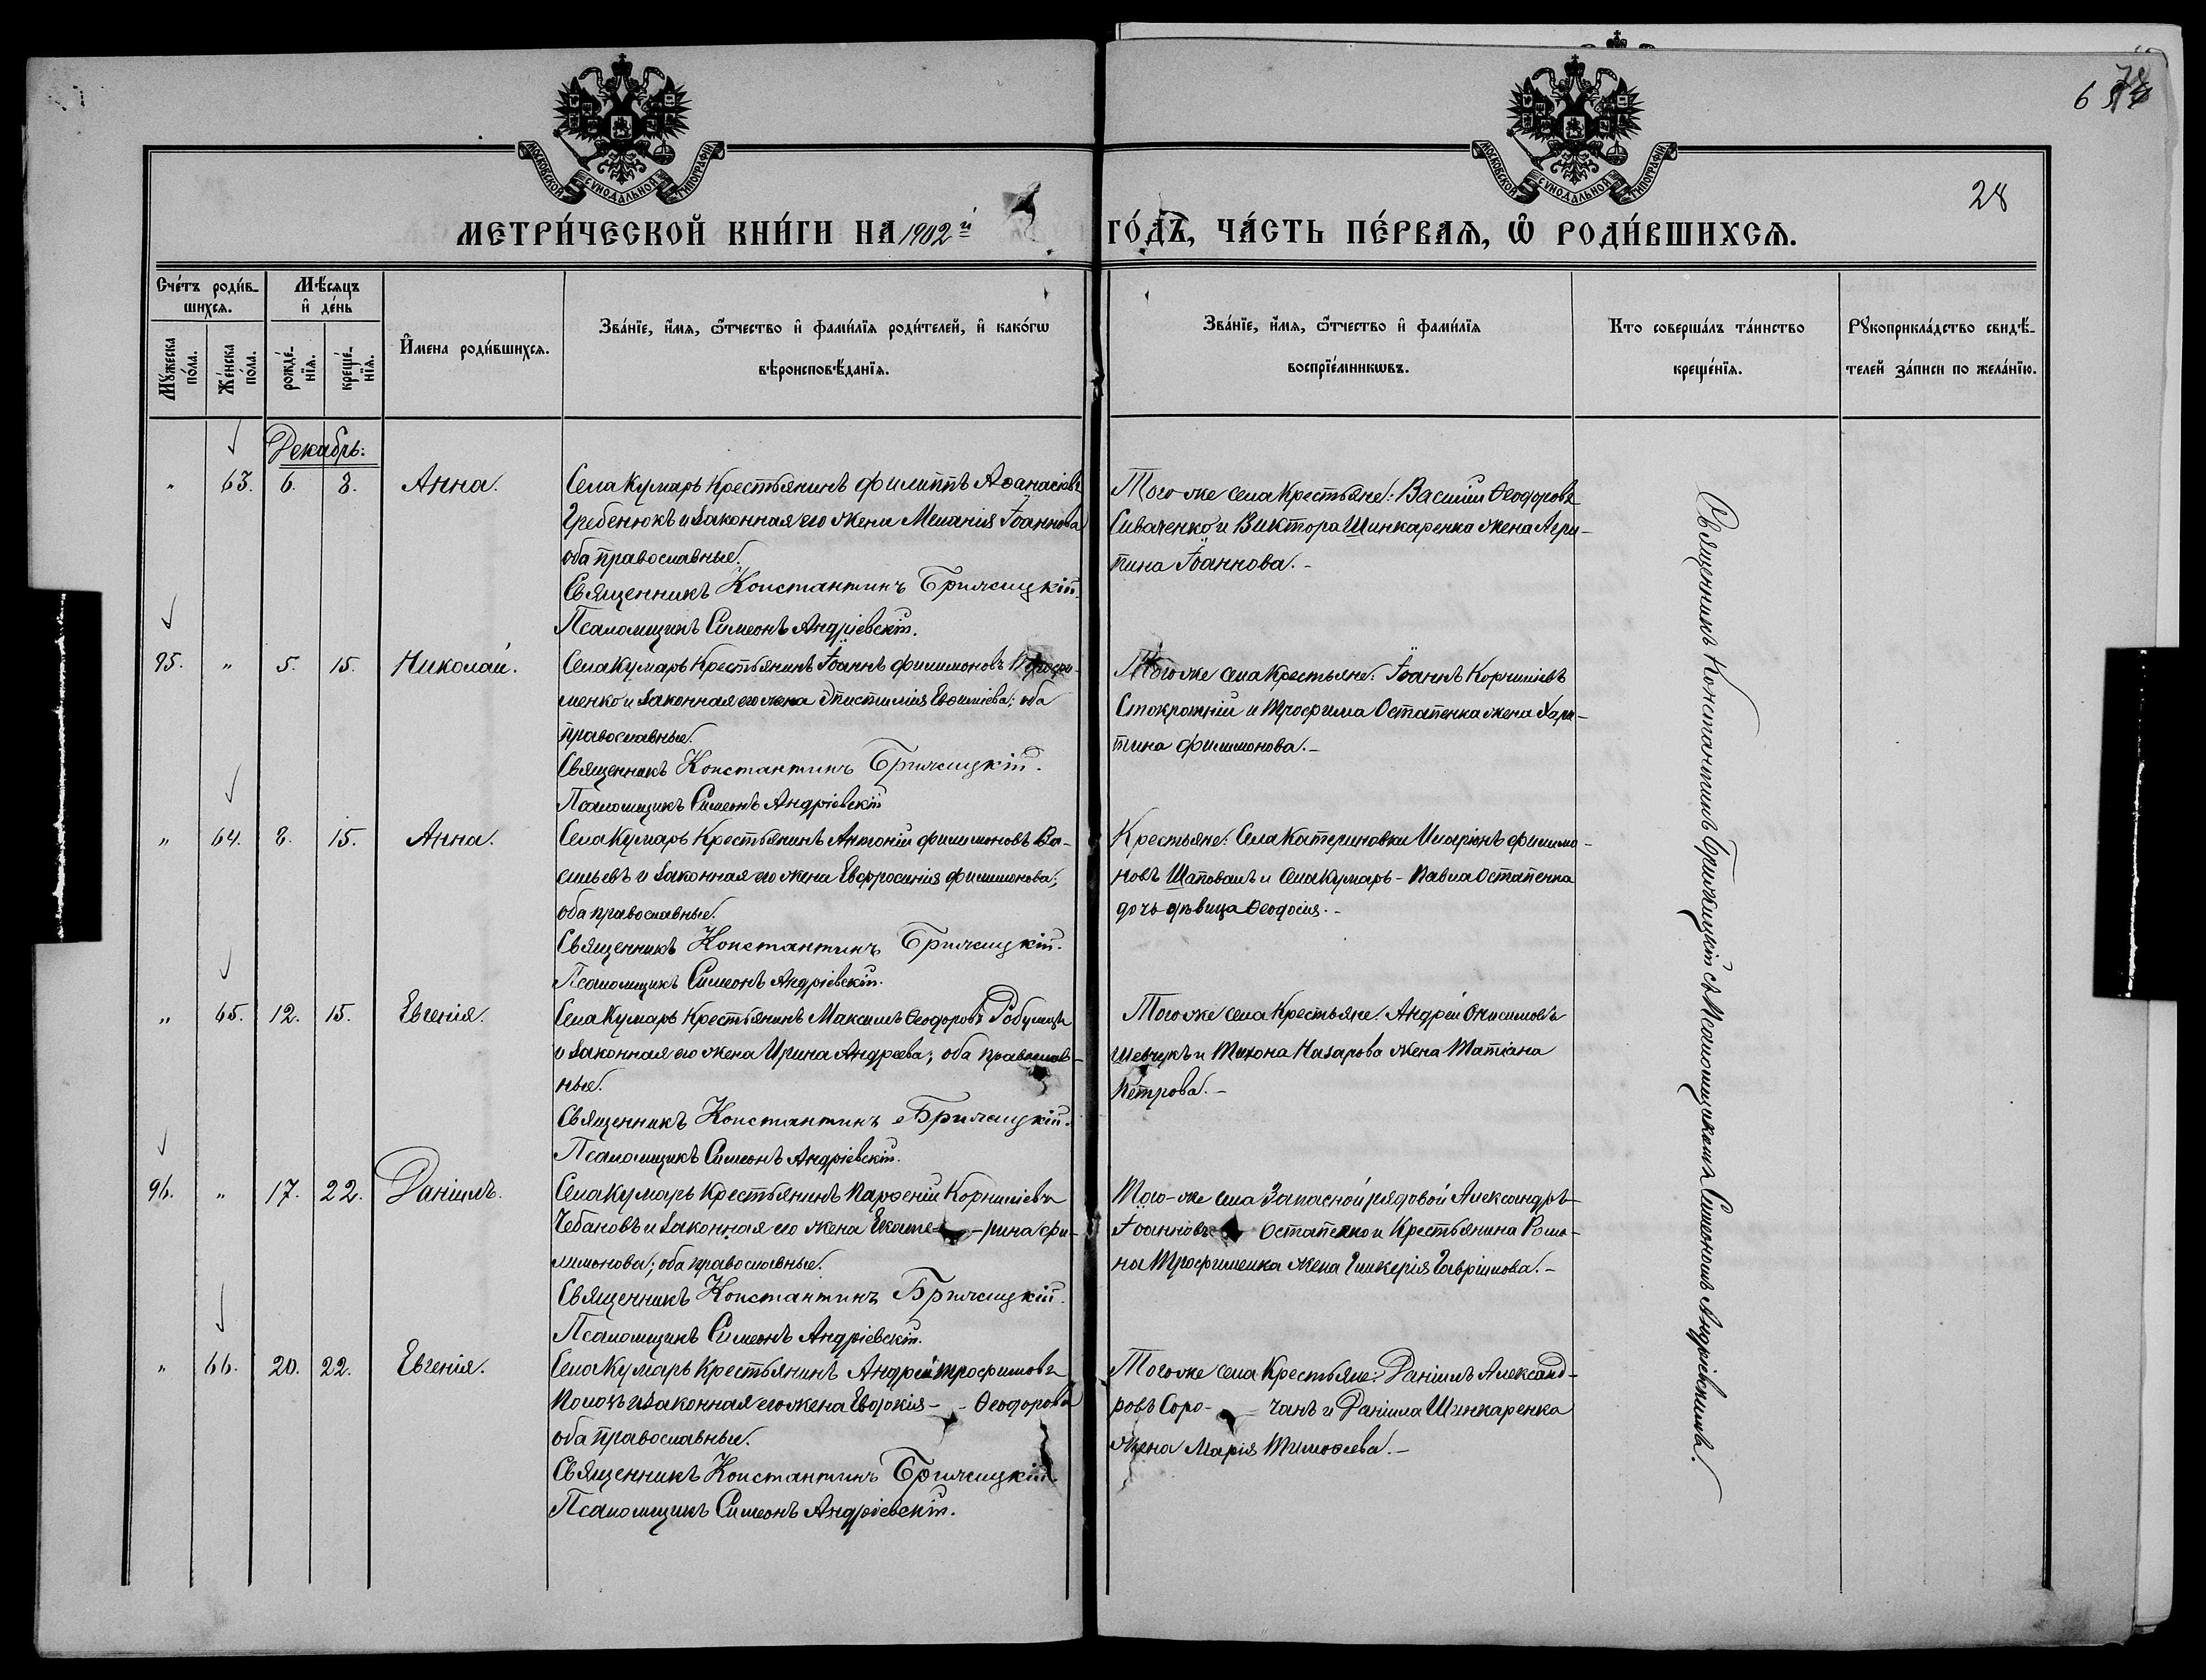 МОСКОВСКОЙ СѴНОДАЛЬНОЙ ТИПОГРАФІИ
МОСКОВСКОЙ СѴНОДАЛЬНОЙ ТИПОГРАФІИ
28
МЕТРИ́ЧЕСКОЙ КНИ́ГИ НА 1902й ГО́ДЪ, ЧА́СТЬ ПЕ́РВАѦ, Ѡ҆ РОДИ́ВШИХСѦ.
Сче́тъ роди́в-
шихсѧ.
Мѣ́сѧцъ
и҆ де́нь
Мꙋ́жеска по́ла.
Же́нска по́ла.
рожде́-
нїѧ.
креще́-
нїѧ.
И҆мена роди́вшихсѧ.
Зва́нїе, и҆́мѧ, ѻ҆́тчество и҆ фами́лїѧ роди́телей, и҆ како́гѡ
вѣроисповѣ́данїѧ.
Зва́нїе, и҆́мѧ, ѻ҆́тчество и҆ фами́лїѧ
воспрїе́мникѡвъ.
Кто соверша́лъ та́инство
креще́нїѧ.
Рꙋкоприкла́дство свидѣ́-
телей за́писи по жела́нїю.
Декабрь:
" 63. 6. 8. Анна.
Села Кумарь Крестьянинъ Филиппъ Аѳанасіевъ
Гребенюкъ и законная его жена Меланія Іоаннова
оба православные.
Священникъ Константинъ Брижицкій.
Псаломщикъ Симеонъ Андріевскій.
Того же села Крестьяне: Василій Ѳеодоровъ
Сиваченко и Виктора Шинкаренка жена Агри-
пина Іоаннова.-
95. " 5. 15. Николай.
Села Кумарь Крестьянинъ Іоаннъ Филимоновъ
менко и законная его жена Епистимія Евѳиміева; оба
православные.
Священникъ Константинъ Брижицкій.
Псаломщикъ Симеонъ Андріевскій
Того же села Крестьяне: Іоаннъ Корниліевъ
Стокротній и Трофима Остапенка жена Хари-
тина Филимонова.-
" 64. 8. 15. Анна.
Села Кумарь Крестьянинъ Антоній Филимоновъ Ва-
сильевъ и законная его жена Евфросинія Филимонова;
оба православные.
Священникъ Константинъ Брижицкій.
Псаломщикъ Симеонъ Андріевскій.
Крестьяне: Села Катериновки Иларіонъ Филимо-
новъ Шаповалъ и села Кумарь - Павла Остапенка
дочь дѣвица Ѳеодосія.-
" 65. 12. 15. Евгенія.
Села Кумарь Крестьянинъ Максимъ Ѳеодоровъ
и законная его жена Ирина Андреева; оба православ-
ные.
Священникъ Константинъ Брижицкій.
Псаломщикъ Симеонъ Андріевскій.
Того же села Крестьяне: Андрей Онисимовъ
Шевчукъ и Тихона Назарова жена Татіана
Петрова.-
96. " 17. 22. Даніилъ.
Села Кумарь Крестьянинъ Парѳеній Корниліевъ
Чебановъ и законная его жена Екате- -рина Фи-
лимонова; оба православные.
Священникъ Константинъ Брижицкій.
Псаломщикъ Симеонъ Андріевскій.
Того-же села Запасной рядовой Александръ
Іоанновъ Остапенко и Крестьянина Рома-
на Трофименка жена Гликерія Гавріилова.-
" 66. 20. 22. Евгенія.
Села Кумарь Крестьянинъ Андрей Трофимовъ
и законная его жена Евдокія - - Ѳеодорова
оба православные.
Священникъ Константинъ Брижицкій.
Псаломщикъ Симеонъ Андріевскій.
Того же села Крестьяне: Даніилъ Александ-
ровъ Соро- чанъ и Даніила Шинкаренка
жена Марія Тимоѳеева.-
Священникъ Константинъ Брижицкій съ Псаломщикомъ Симеономъ Андріевскимъ.